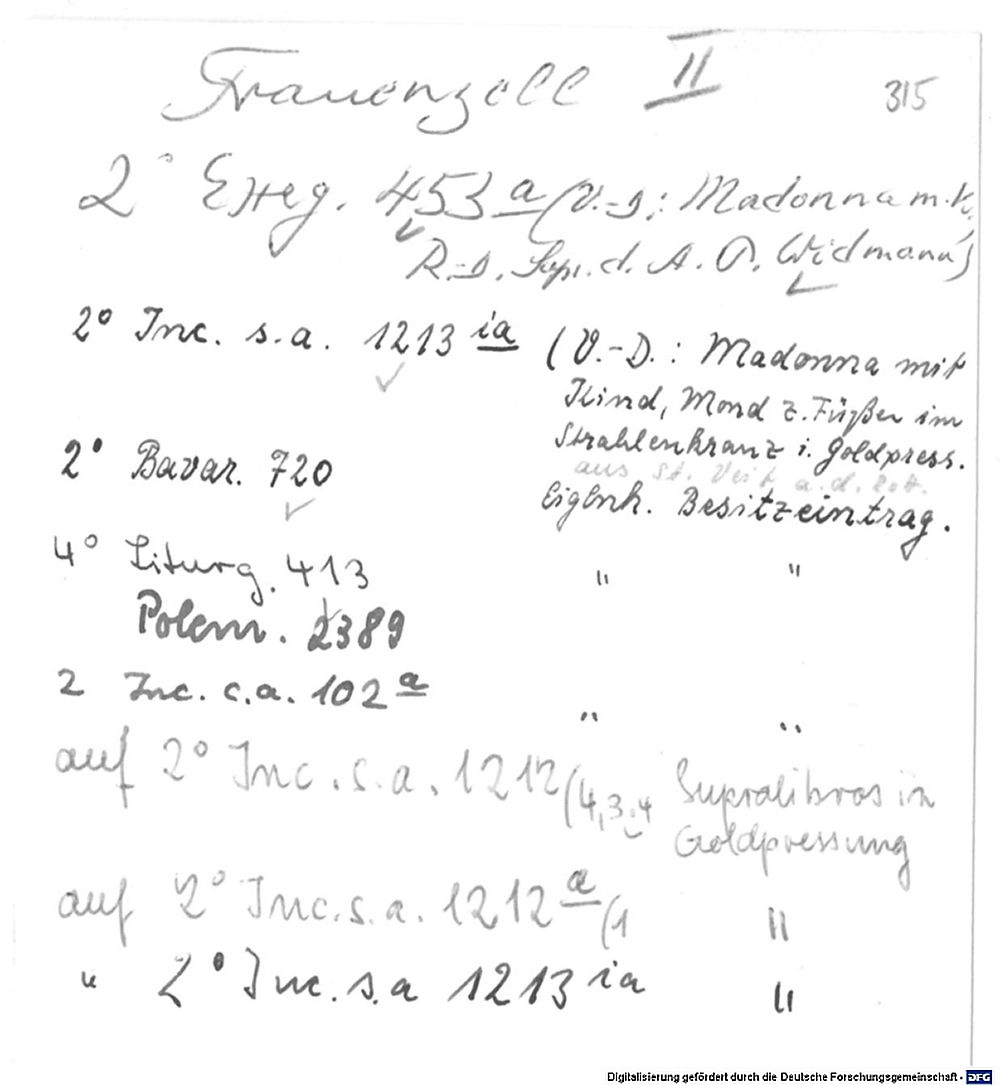 Frauenzell II 315
2° Exeg. 453 a (V.-D: Madonna m. K.
R.-D. Supr. d. A. O. Widmann)
2° Inc. s.a. 1213 ia (V.-D.: Madonna mit
Kind, Mond z. Füßen im
Strahlenkranz i. Goldpress.
aus St. Veit a. d. Rott.
2° Bavar. 720
Eigenh. Besitzeintrag.
4° Liturg. 413 " "
Polem. 2389
2 Inc. c.a. 102 a " "
auf 2° Inc. s.a. 1212 (4,3.4 Supralibros in
Goldpressung
auf 2° Inc. s.a. 1212 a (1 "
" 2° Inc. s.a 1213 ia "
Digitalisierung gefördert durch die Deutsche Forschungsgemeinschaft - DFG